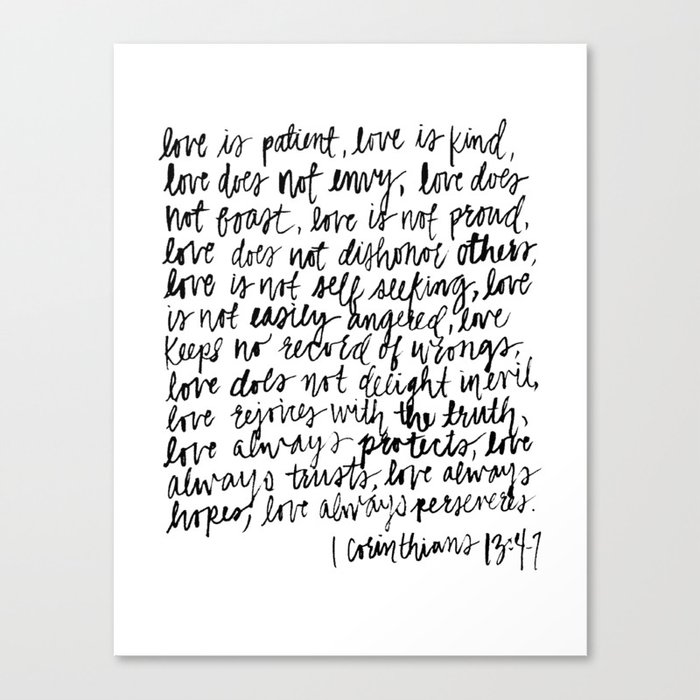 love is patient, love is kind,
love does not envy, love does
not boast, love is not proud,
love does not dishonor others,
love is not self seeking, love
is not easily angered, love
keeps no record of wrongs,
love does not delight in evil,
love rejoices with the truth,
love always protects, love
always trusts, love always
hopes, love always perseveres.
1 Corinthians 13:4-7